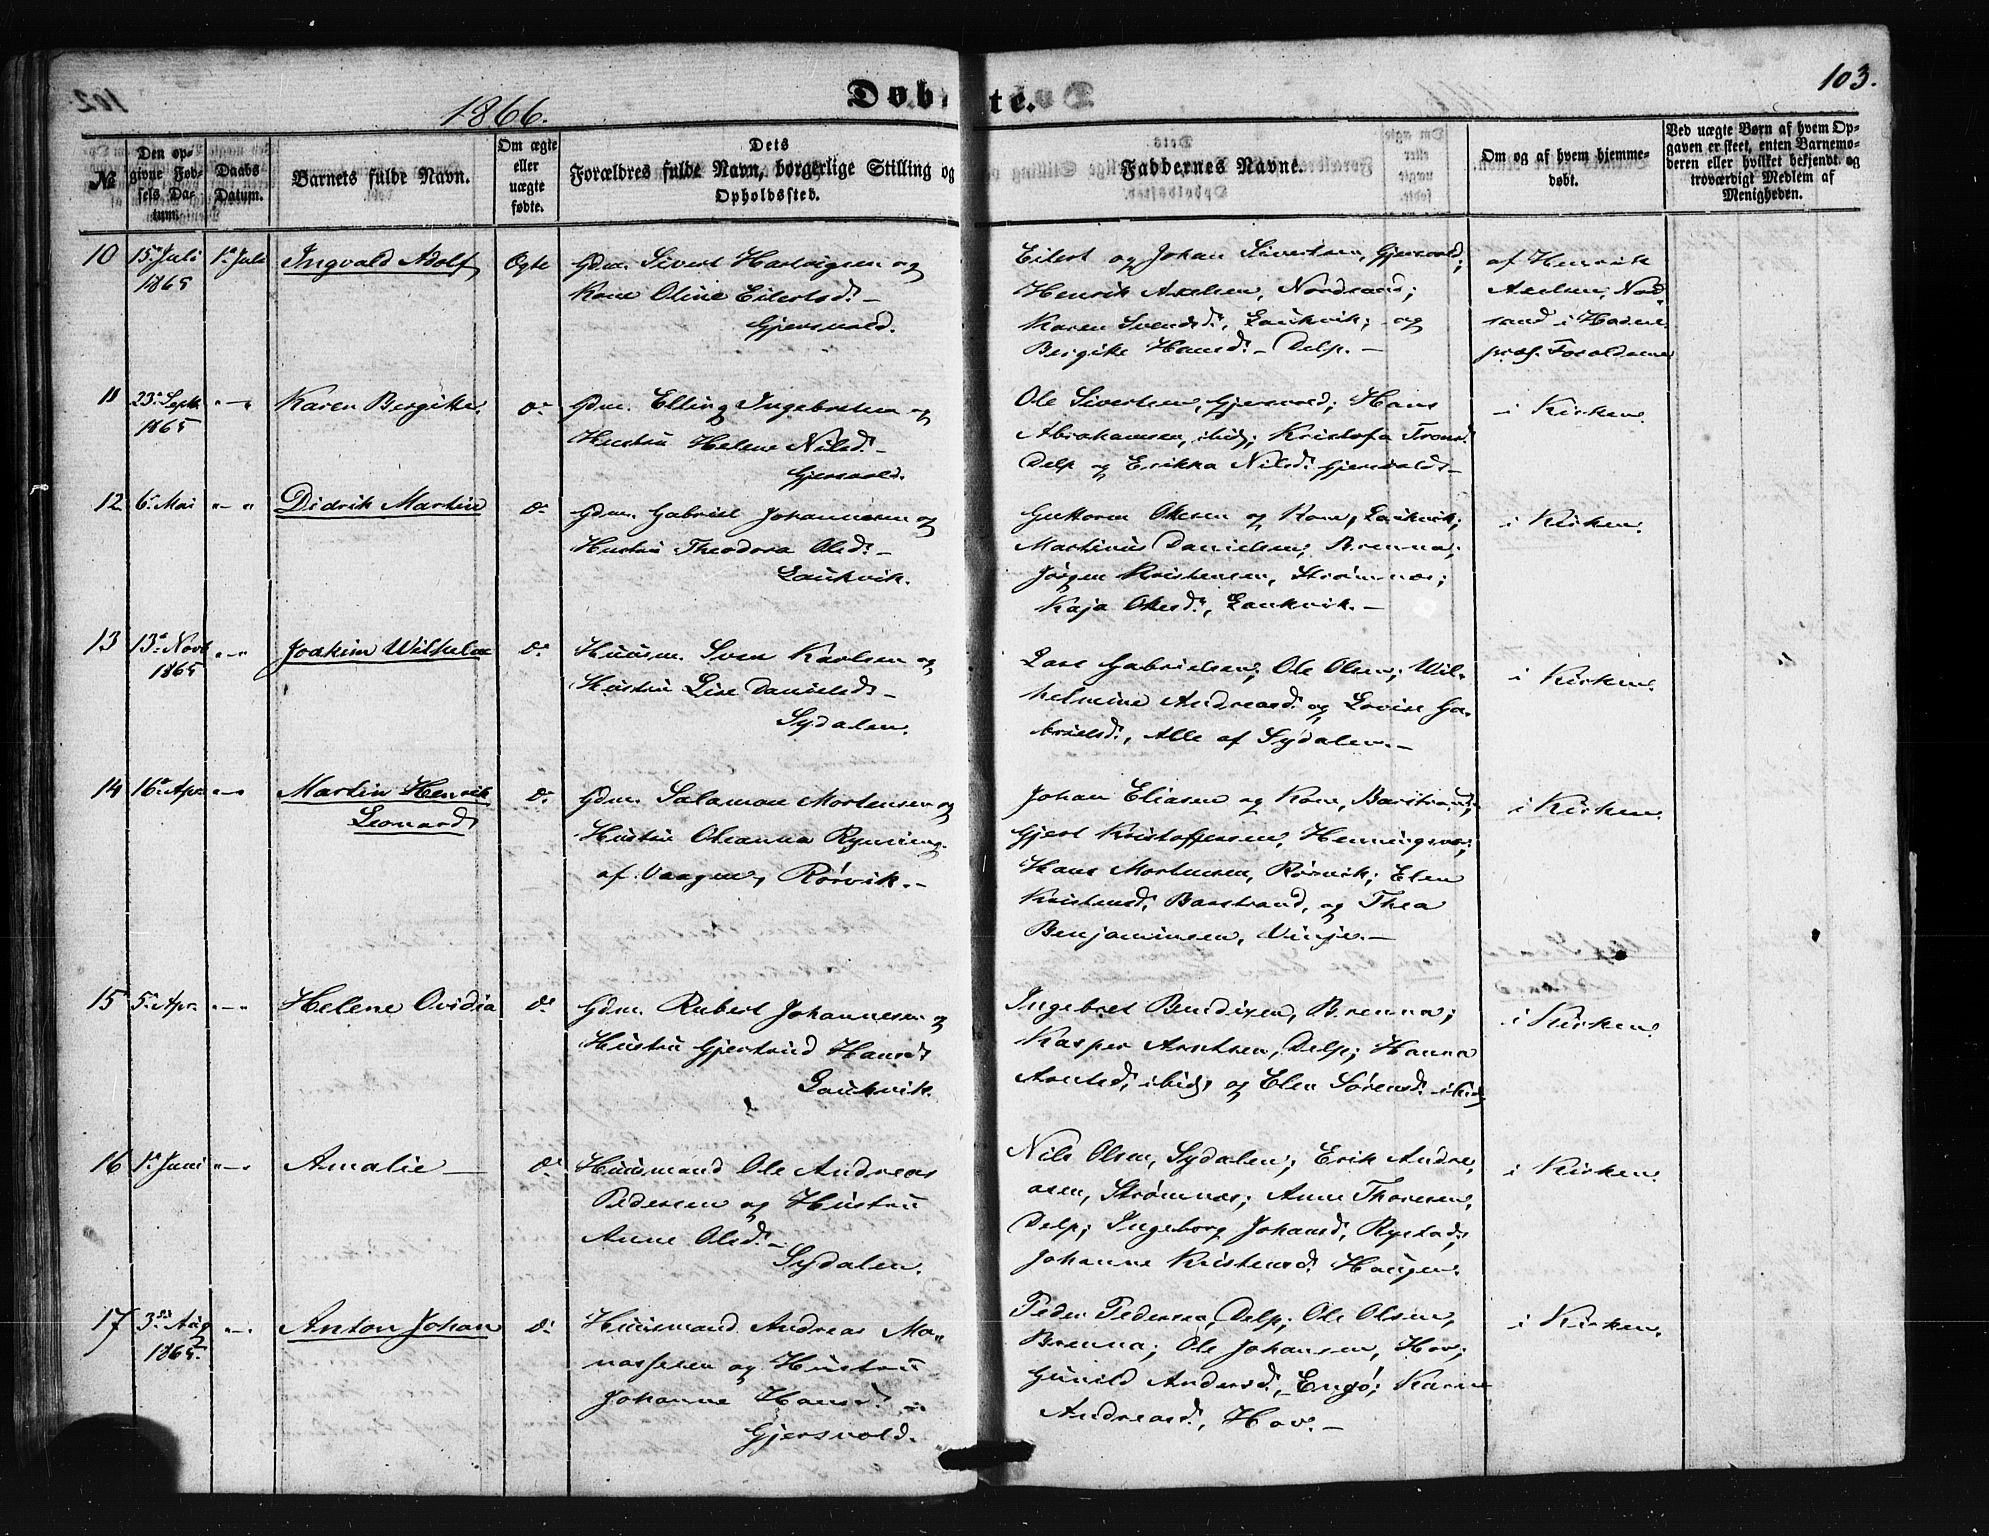 1866.
Døbte.
103.
№
Den opgivne Fødsels Datum.
Daabs Datum.
Barnets fulde Navn.
Om ægte eller uægte fødte.
Dets Forældres fulde Navn, borgerlige Stilling og Opholdssted.
Faddernes Navne.
Om og af hvem hjemmedøbt.
Ved uægte Børn af hvem Opgaven er skeet, enten Barnemoderen eller hvilket bekjendt og troværdigt Medlem af Menigheden.
10 15de Juli 1865 1ste Juli Ingvald Adolf Ægte
Gdm. Sivert Hartvigsen og
Kone Oline Eilertsd. –
Gjersvold.
Eilert og Johan Sivertsen, Gjersvold;
Henrik Axelsen, Nordsand;
Karen Svendsd., Laukvik; og
Bergite Hansd. – Delp. –
af Henrik
Axelsen, Nord
sand i
præs. Forældrene
11 23de Sept. 1865 " – " Karen Bergitte do
Gdm. Elling Ingebretsen og
Hustru Helene Nilsd. –
Gjersvold.
Ole Sivertsen, Gjersvold; Hans
Abrahamsen, ibid; Kristofa Tronsd.
Delp og Erikka Nilsd. Gjersvold –
i Kirken.
12 6te Mai " – " Didrik Martin do
Gdm. Gabriel Johannesen og
Hustru Theodora Olsd. –
Laukvik.
Guttorm Olsen og Kone, Laukvik;
Martinus Danielsen, Brenna;
Jørgen Kristensen, Strømnæs;
Kaja Olsd., Laukvik. –
i Kirken.
13 13de Novb. 1865 " – " Joakim Wilhelm do
Huusm. Sven Karlsen og
Hustru Lise Danielsd. –
Sydalen.
Lars Gabrielsen; Ole Olsen; Wil-
helmine Andreasd. og Lovise Ga-
brielsd., Alle af Sydalen. –
i Kirken.
14 16de Apr. " – " Martin Henrik
Leonard do
Gdm. Salamon Mortensen og
Hustru Oleanna Rynning
af Vaagen, Rørvik. –
Johan Eliasen og Kone, Barstrand;
Gjert Kristoffersen, Henningsvær;
Hans Mortensen, Rørvik; Elen
Kristensd. Barstrand, og Thea
Benjaminsen, Vinje. –
i Kirken.
15 5te Apr. " – " Helene Ovidia do
Gdm. Rubert Johannesen og
Hustru Gjertrud Hansd.
Laukvik.
Ingebret Bendixen, Brenna;
Kasper Arntsen, Delp; Hanna
Arntsd. ibid; og Elen Sørensd. ibid
i Kirken.
16 1ste Juni " – " Amalie – do
Huusmand Ole Andreas
Pedersen og Hustru
Anne Olsd. –
Sydalen.
Nils Olsen, Sydalen; Erik Andre-
asen, Strømnæs; Anne Thoresen,
Delp; Ingeborg Johansd., Rystad;
Johanne Kristensd. Haugen.
i Kirken.
17 3die Aug 1865. " – " Anton Johan do
Huusmand Andreas Ma-
nassesen og Hustru
Johanne Hansd. –
Gjersvold.
Peder Pedersen, Delp; Ole Olsen,
Brenna; Ole Johansen, Hov;
Gunild Andersd., Engø; Karen
Andreasd., Hov. –
i Kirken.